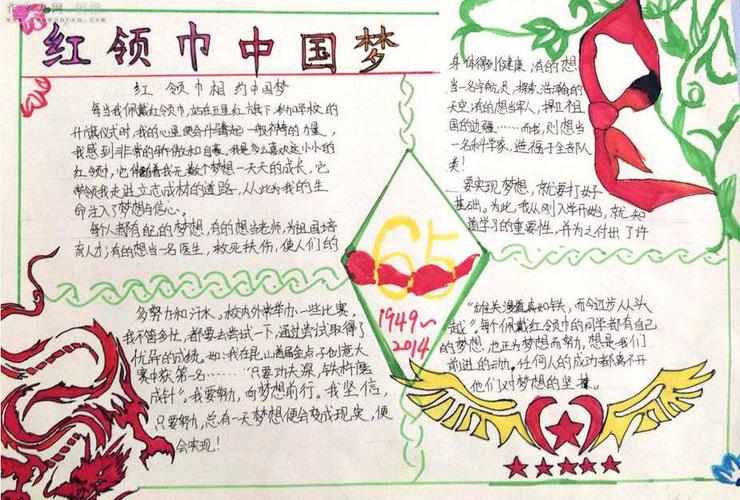 红领巾中国梦
红领巾相约中国梦
每当我佩戴红领巾,站在五星红旗下,参加学校的
升旗仪式时,我的心里便会升腾起一股神特的力量,
我感到非常的骄傲和自豪。我是多么喜欢这小小的
红领巾,它伴随着我无数个梦想一天天的成长,它
带领我走进立志成材的道路,从此为我的生
命注入了梦想与信心。
每个人都有自己的梦想,有的想当老师,为祖国培
育人才;有的想当一名医生,救死扶伤,使人们的
身体得到健康;有的想
当一名宇航员,探索浩瀚的
天空;有的想当军人,捍卫祖
国的边疆……而我,则想当
一名科学家,造福于全部人
类!
要实现梦想,就要打好
基础。为此,我从刚入学开始,就知
道学习的重要性,并为之付出了许
多努力和汗水。校内外常举办一些比赛,
我不管多忙,都要去尝试一下,通过尝试取得了
优异的成绩。如:我在昆山首届金点子创意大
赛中获第一名……“只要功夫深,铁杵磨
成针”。我要努力,向梦想前行。我坚信,
只要努力,总有一天梦想便会变成现实,便
会实现!
65
1949~
2014
“雄关漫道真如铁,而今迈步从头
越”,每个佩戴红领巾的同学都有自己
的梦想,也正为梦想而努力,想是我们
前进的动力。任何人的成功都离不开
他们对梦想的坚